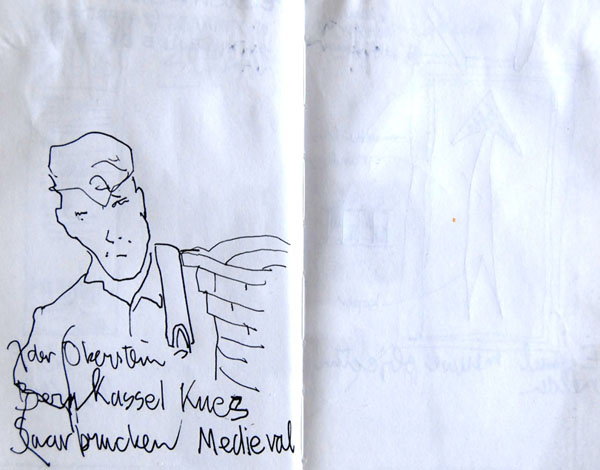 Ider Oberstein
Bern Kassel Kues
Saarbrucken Medieval